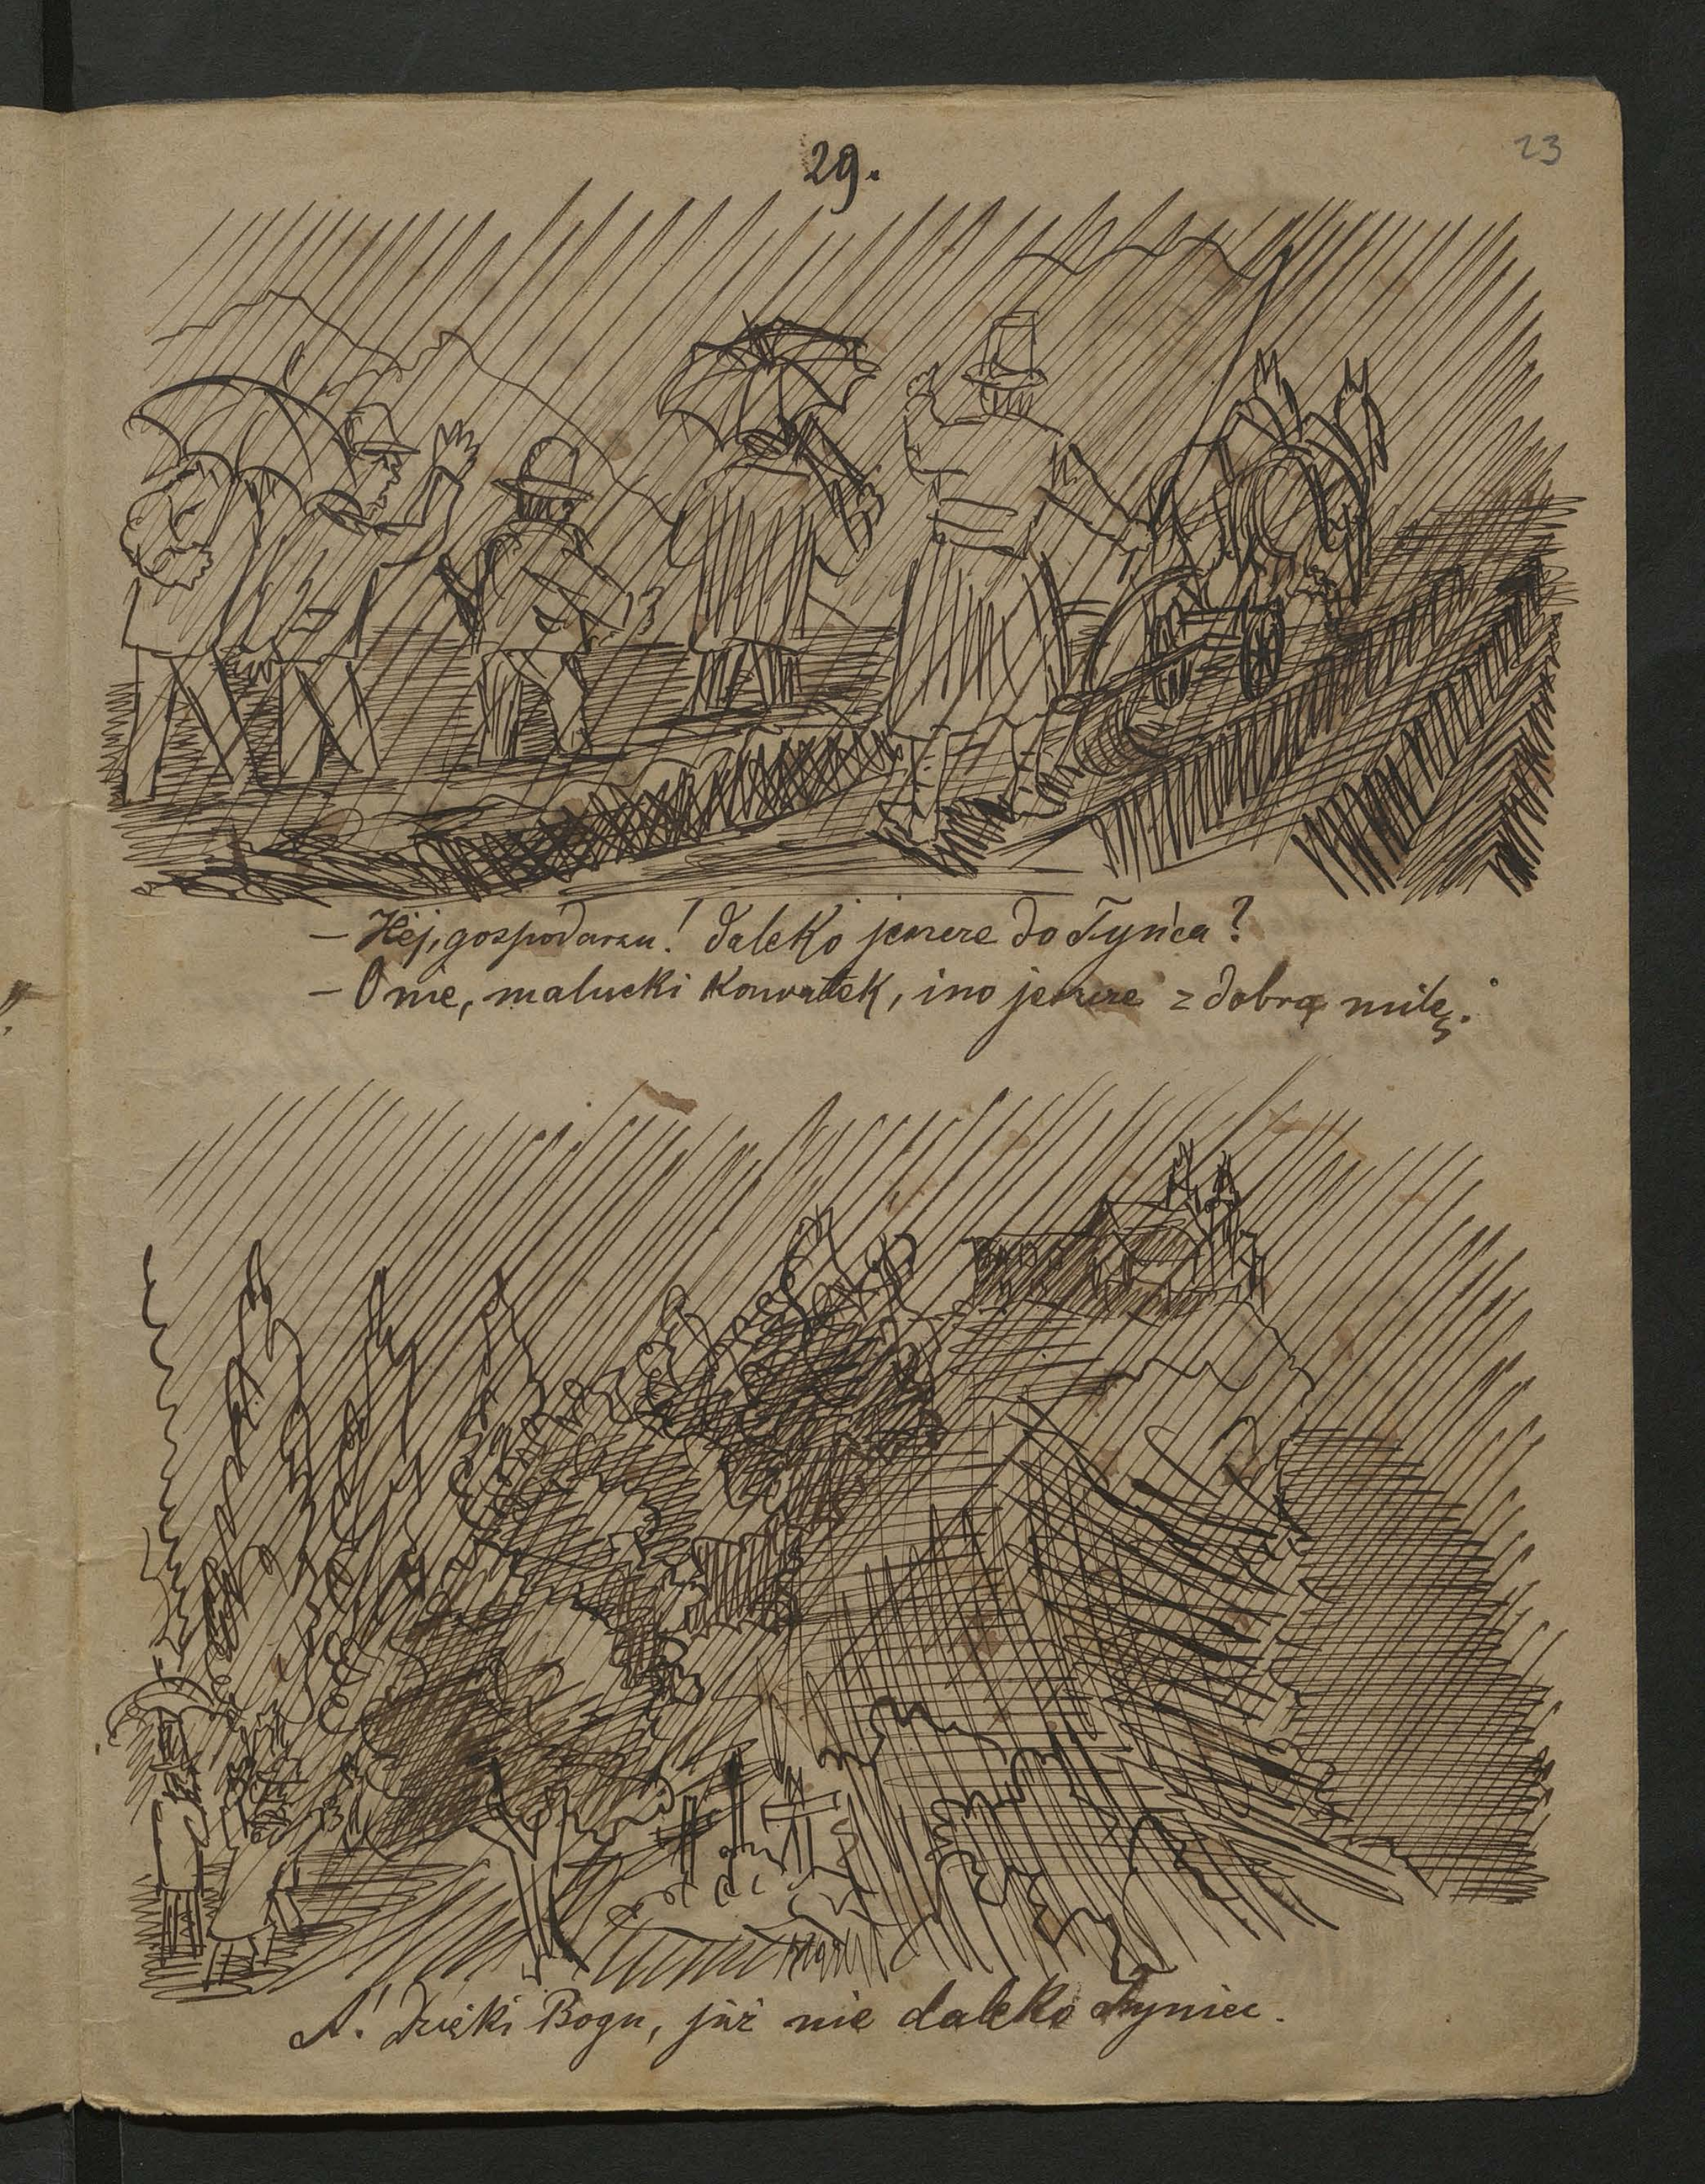 29.
23
— Hej, gospodarzu! daleko jeszcze do Tyńca?
— O nie, malucki kowałek, ino jeszcze z dobrą milę.
A! Dzięki Bogu, już nie daleko Tyniec.